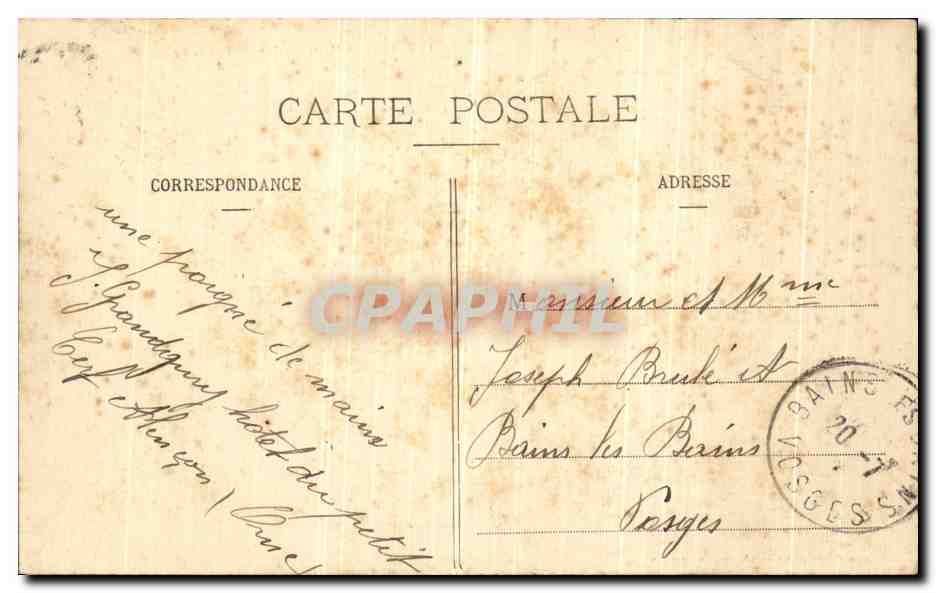 CARTE POSTALE
CORRESPONDANCE
une poigné de mains
J. Grandguy hôtel du petit
Cerf Alençon (Orne)
ADRESSE
Monsieur et Mme
Joseph Brulé
Bains les Bains
Vosges
BAINS LES BAINS
20 -7
VOSGES
CPAPHIL